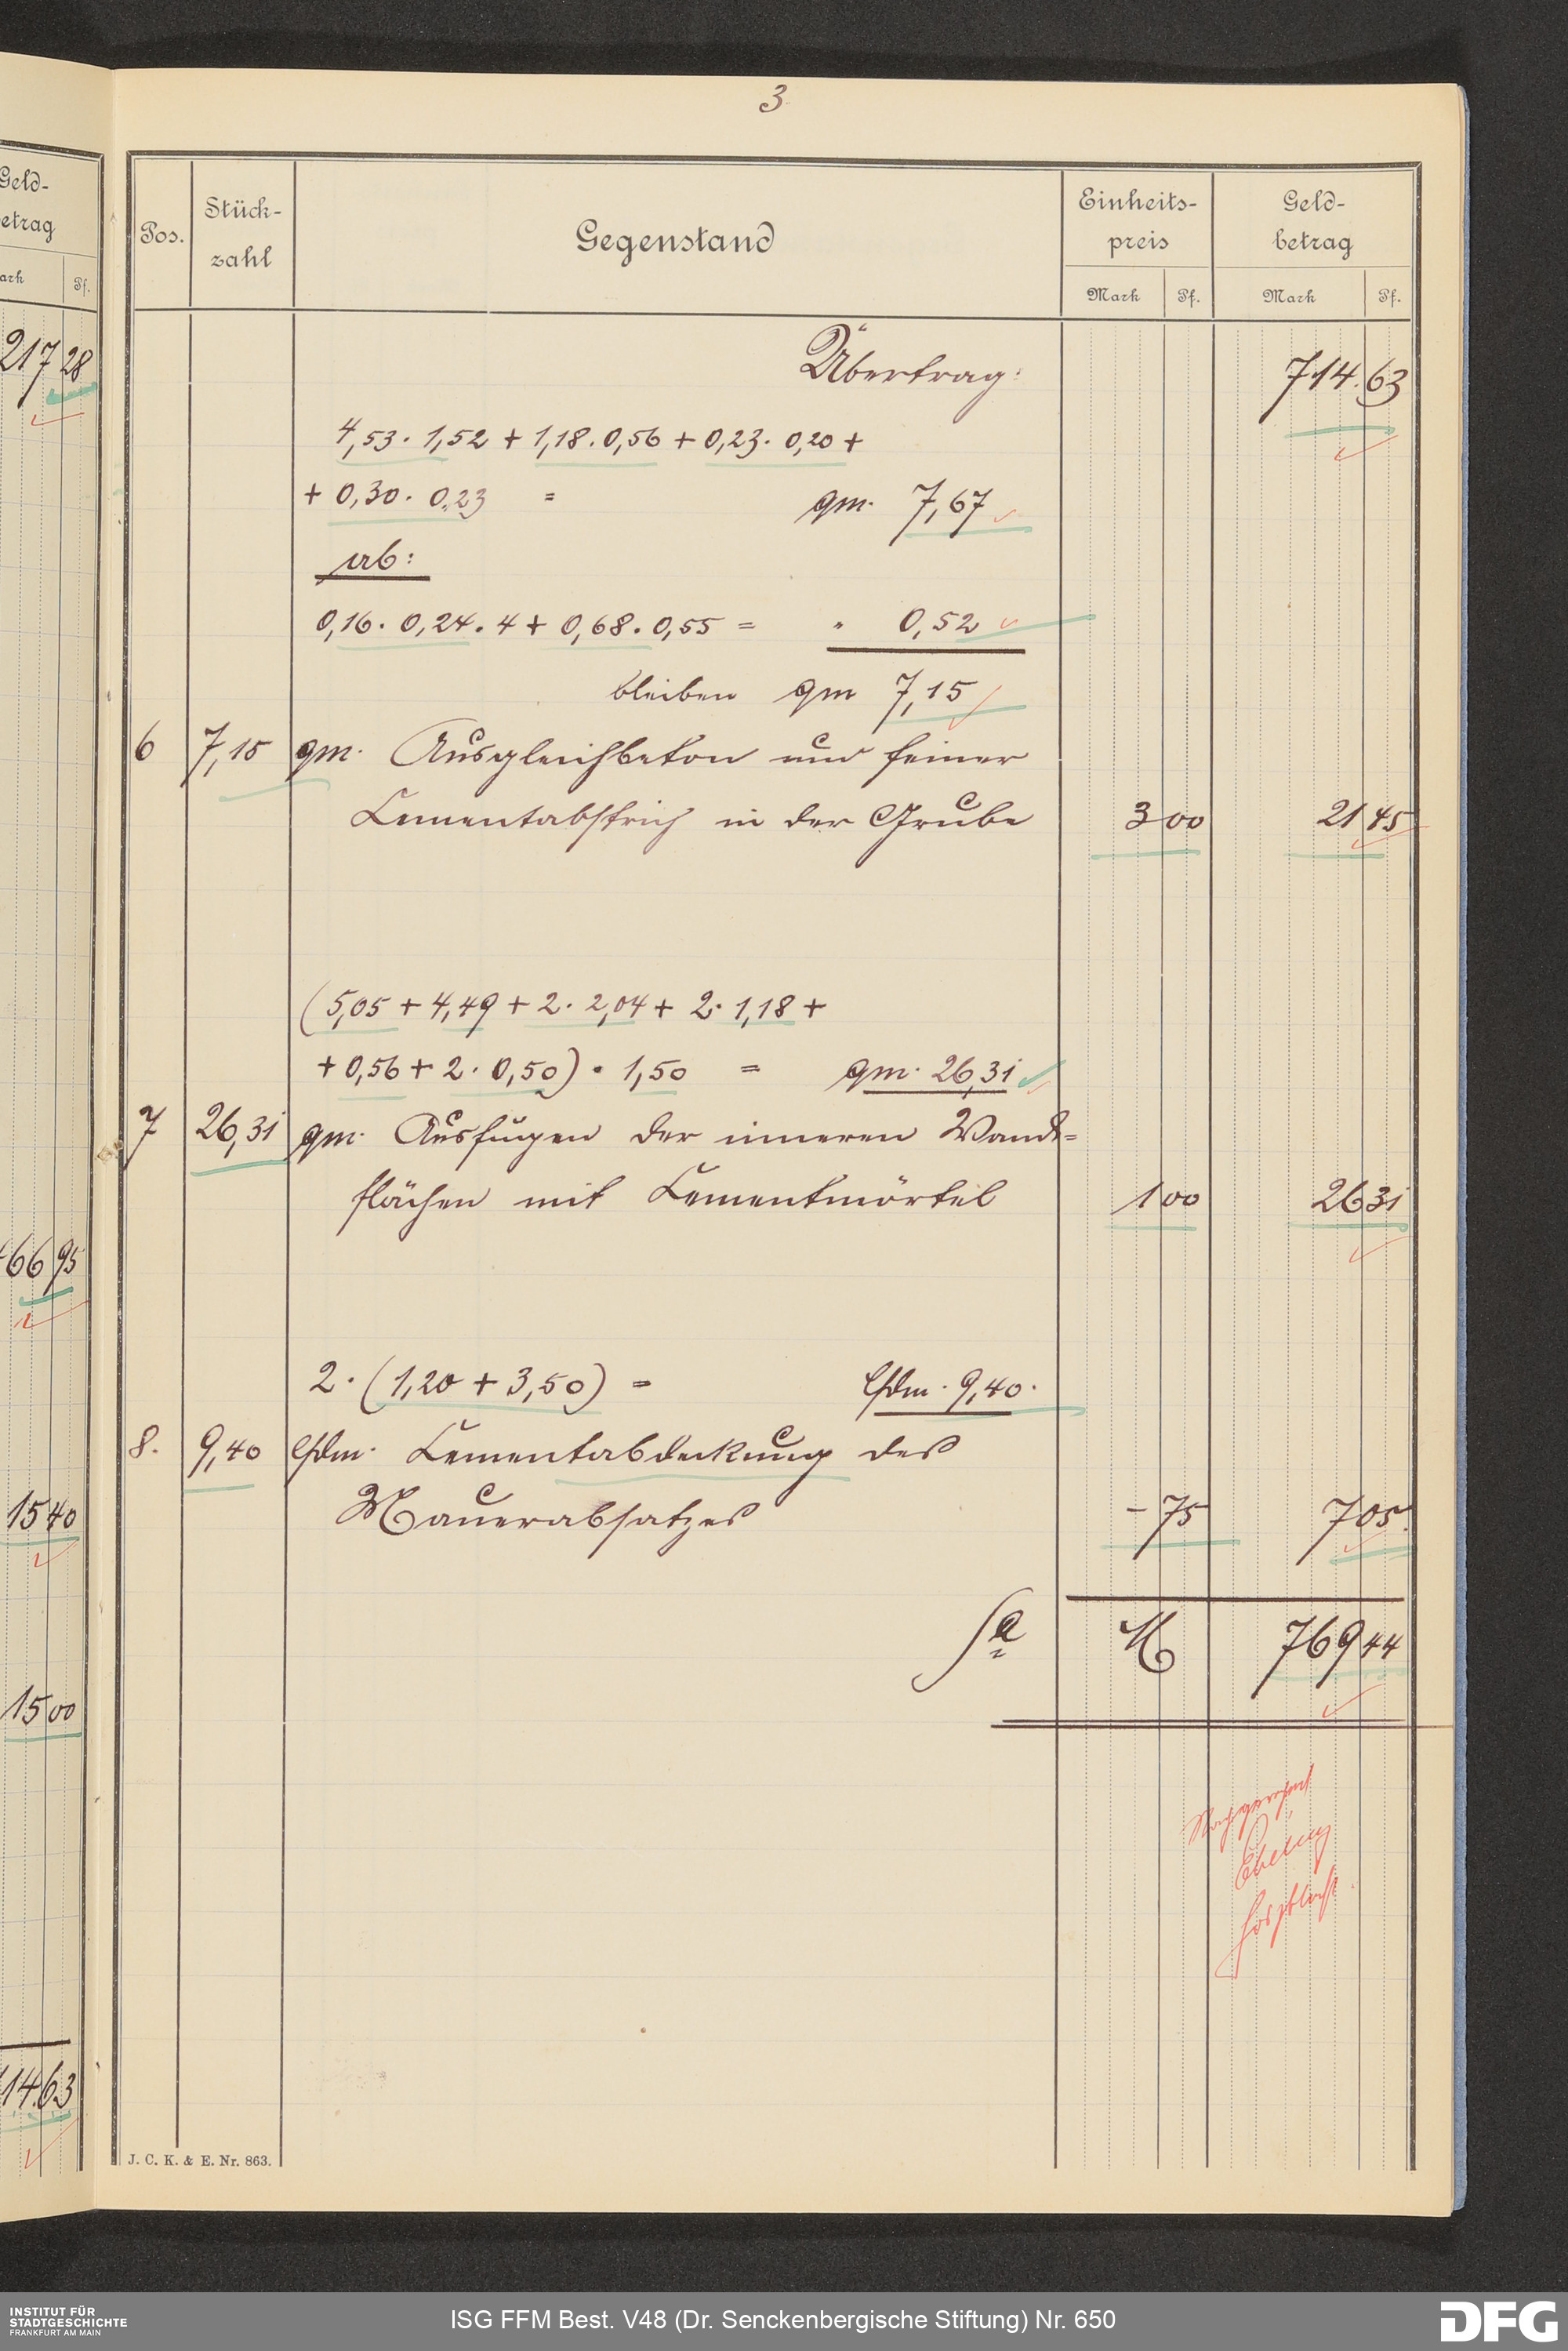 Geld-
etrag
ark Pf.
217 28
66 95
15 40
15 00
14.63
3
Pos. Stück- zahl Gegenstand Einheits- preis Geld- betrag
Mark Pf. Mark Pf.
Übertrag: 714.63
4,53 . 1,52 + 1,18 . 0,56 + 0,23 . 0,20 +
+ 0,30 . 0,23 = qm. 7,67
ab:
0,16 . 0,24 . 4 + 0,68 . 0,55 = " 0,52
bleiben qm 7,15
6 7,15 qm. Ausgleichbeton und feiner
Cementabstrich in der Grube 3 00 21 45
(5,05 + 4,49 + 2 . 2,04 + 2 . 1,18 +
+ 0,56 + 2 . 0,50) . 1,50 = qm. 26,31
7 26,31 qm. Ausfugen der inneren Wand=
flächen mit Cementmörtel 1 00 26 31
2 . (1,20 + 3,50) = lfdm. 9,40.
8. 9,40 lfdm. Cementabdeckung des
Mauerabsatzes – 75 7 05.
Sa M 769 44
J. C. K. & E. Nr. 863.
INSTITUT FÜR
STADTGESCHICHTE
FRANKFURT AM MAIN
ISG FFM Best. V48 (Dr. Senckenbergische Stiftung) Nr. 650
DFG